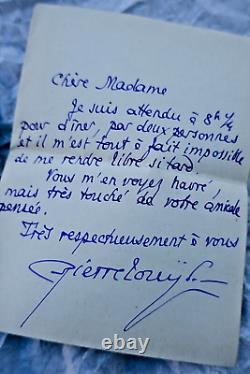 Chère Madame
Je suis attendu à 8h 1/4
pour dîner, par deux personnes
et il m'est tout à fait impossible
de me rendre libre si tard.
Vous m'en voyez navré,
mais très touché de votre amicale
pensée.
Très respectueusement à vous
Pierre Louÿs
© 123RF